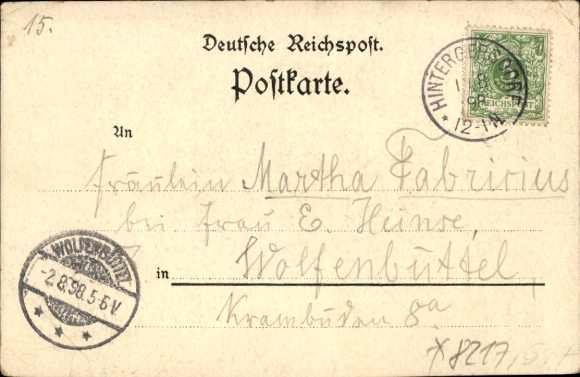 15.
Deutsche Reichspost.
Postkarte.
5
REICHSPOST
1 8 98
* 12-1N.
An
Fräulein Martha Fabricius
bei Frau E. Heinse,
in Wolfenbüttel,
Krambuden 8a
WOLFENBÜTTEL
-2.8.98.5-6V
* * *
*8217